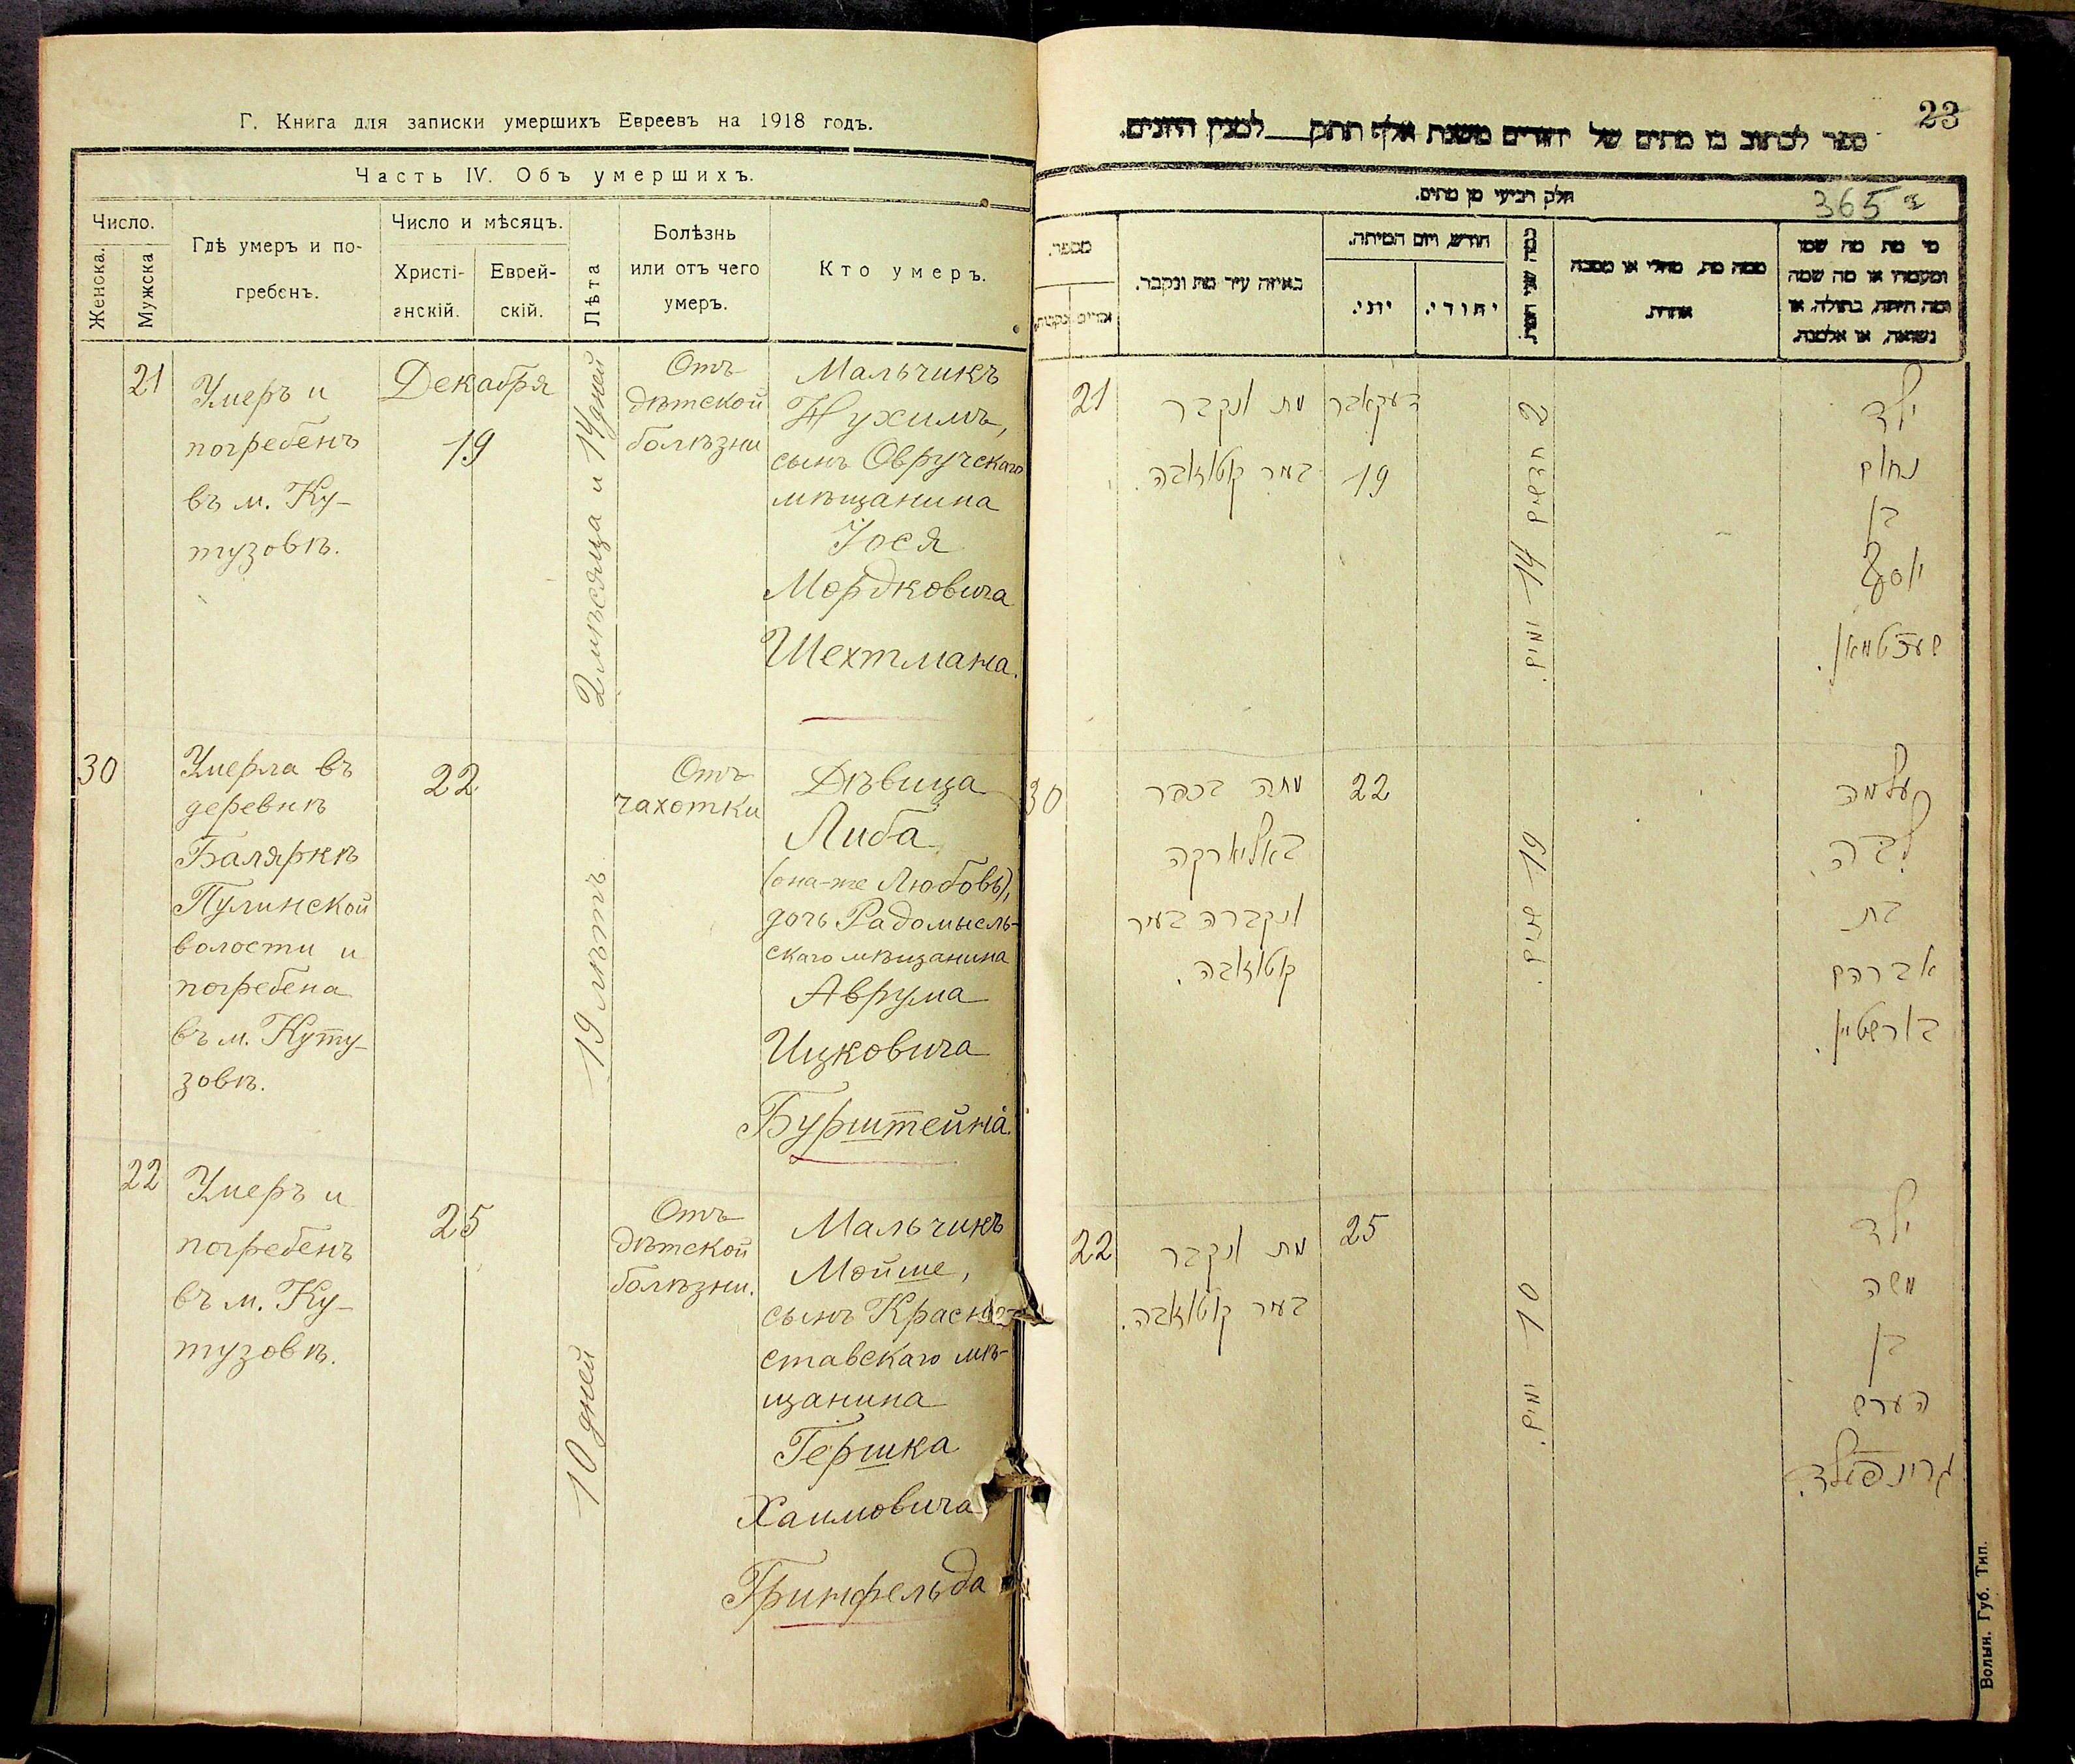 Г. Книга для записки умершихъ Евреевъ на 1918 годъ.
Часть IV. Объ умершихъ.
Число.
Женска.
Мужска
Гдѣ умеръ и по-
гребенъ.
Число и мѣсяцъ.
Христі-
анскій.
Еврей-
скій.
Лѣта
Болѣзнь
или отъ чего
умеръ.
Кто умеръ.
21
Умеръ и
погребенъ
въ м. Ку-
тузовкѣ.
Декабря
19
2 мѣсяца и 14 дней
Отъ
дѣтской
болѣзни
Мальчикъ
Нухимъ,
сынъ Овручскаго
мѣщанина
Іося
Мордковича
Шехтмана.
30
Умерла въ
деревнѣ
Баляркѣ
Пулинской
волости и
погребена
въ м. Куту-
зовкѣ.
22
19 лѣтъ.
Отъ
чахотки
Дѣвица
Либа
(она-же Любовь),
дочь Радомысль-
скаго мѣщанина
Аврума
Ицковича
Бурштейна.
22
Умеръ и
погребенъ
въ м. Ку-
тузовкѣ.
25
10 дней
Отъ
дѣтской
болѣзни.
Мальчикъ
Мойше,
сынъ Красно-
ставскаго мѣ-
щанина
Гершка
Хаимовича
Гринфельда
23
ספר לכתוב בו מתים של יהודים משנת אלף תתק__למנין היונים.
חלק רביעי מן מתים.
365
מספר.
נקבות
זכרים
באיזה עיר מת ונקבר.
חודש ויום המיתה.
יוני.
יהודי.
כמה שני המת.
ממה מת, מחלי או מסבה
אחרת.
מי מת מה שמו
ומעמדו או מה שמה
ומה היתה, בתולה, או
נשואה, או אלמנה.
21
מת ונקבר
בעיר קוטוזובה.
דעקאבר
19
2 חדשים 14 ימים.
ילד
נחום
בן
יוסף
שעכטמאן.
30
מתה בכפר
באליארקה
ונקברה בעיר
קוטוזובה.
22
19 שנים.
עלמה
ליבה
בת
אברהם
בורשטיין.
22
מת ונקבר
בעיר קוטוזובה.
25
10 ימים.
ילד
משה
בן
הערש
גרינפעלד.
Волын. Губ. Тип.